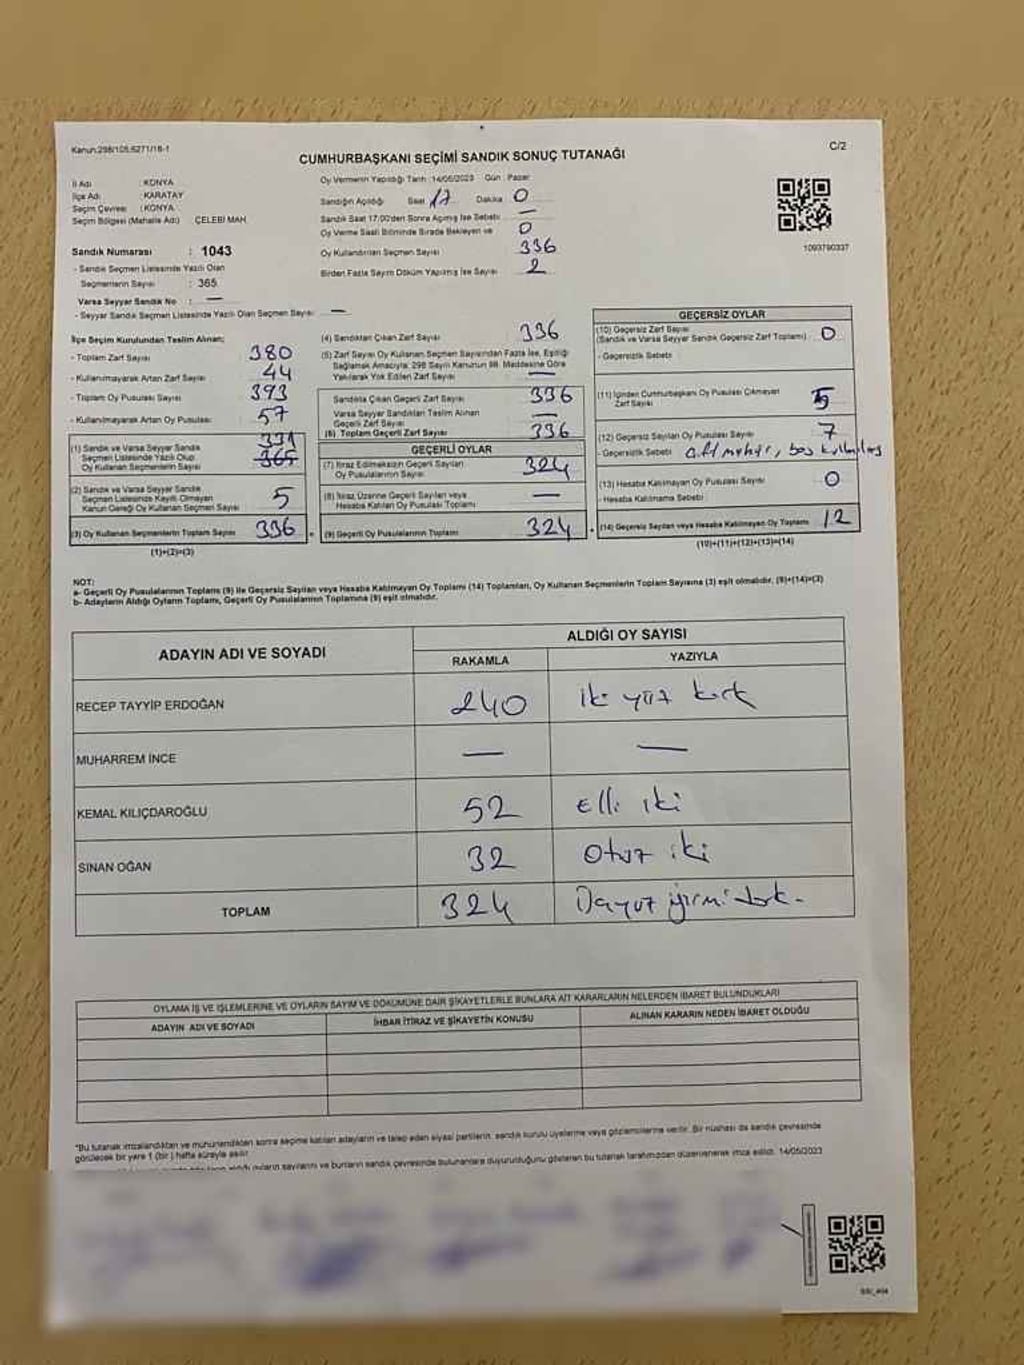 Kanun:298/105,6271/16-1
C/2
CUMHURBAŞKANI SEÇİMİ SANDIK SONUÇ TUTANAĞI
İl Adı : KONYA
İlçe Adı : KARATAY
Seçim Çevresi : KONYA
Seçim Bölgesi (Mahalle Adı) ÇELEBİ MAH.
Sandık Numarası : 1043
- Sandık Seçmen Listesinde Yazılı Olan
Seçmenlerin Sayısı : 365
Varsa Seyyar Sandık No : —
- Seyyar Sandık Seçmen Listesinde Yazılı Olan Seçmen Sayısı: —
Oy Vermenin Yapıldığı Tarih :14/05/2023 Gün : Pazar
Sandığın Açıldığı Saat 17 Dakika 0
Sandık Saat 17:00'den Sonra Açılmış İse Sebebi —
Oy Verme Saati Bitiminde Sırada Bekleyen ve 0
Oy Kullandırılan Seçmen Sayısı 336
Birden Fazla Sayım Döküm Yapılmış İse Sayısı 2
1093790337
İlçe Seçim Kurulundan Teslim Alınan;
- Toplam Zarf Sayısı 380
- Kullanılmayarak Artan Zarf Sayısı 44
- Toplam Oy Pusulası Sayısı 393
- Kullanılmayarak Artan Oy Pusulası 57
(1) Sandık ve Varsa Seyyar Sandık 331
Seçmen Listesinde Yazılı Olup 365
Oy Kullanan Seçmenlerin Sayısı
(2) Sandık ve Varsa Seyyar Sandık
Seçmen Listesinde Kayıtlı Olmayan 5
Kanun Gereği Oy Kullanan Seçmen Sayısı
(3) Oy Kullanan Seçmenlerin Toplam Sayısı 336
(1)+(2)=(3)
(4) Sandıktan Çıkan Zarf Sayısı 336
(5) Zarf Sayısı Oy Kullanan Seçmen Sayısından Fazla İse, Eşitliği
Sağlamak Amacıyla, 298 Sayılı Kanunun 98. Maddesine Göre
Yakılarak Yok Edilen Zarf Sayısı —
Sandıkta Çıkan Geçerli Zarf Sayısı 336
Varsa Seyyar Sandıktan Teslim Alınan
Geçerli Zarf Sayısı —
(6) Toplam Geçerli Zarf Sayısı 336
GEÇERLİ OYLAR
(7) İtiraz Edilmeksizin Geçerli Sayılan
Oy Pusulasının Sayısı 324
(8) İtiraz Üzerine Geçerli Sayılan veya
Hesaba Katılan Oy Pusulası Toplamı —
(9) Geçerli Oy Pusulalarının Toplamı 324
GEÇERSİZ OYLAR
(10) Geçersiz Zarf Sayısı
(Sandık ve Varsa Seyyar Sandık Geçersiz Zarf Toplamı) 0
- Geçersizlik Sebebi
(11) İçinden Cumhurbaşkanı Oy Pusulası Çıkmayan
Zarf Sayısı 5
(12) Geçersiz Sayılan Oy Pusulası Sayısı 7
- Geçersizlik Sebebi boş
(13) Hesaba Katılmayan Oy Pusulası Sayısı 0
- Hesaba Katılmama Sebebi
(14) Geçersiz Sayılan veya Hesaba Katılmayan Oy Toplamı 12
(10)+(11)+(12)+(13)=(14)
NOT:
a- Geçerli Oy Pusulalarının Toplamı (9) ile Geçersiz Sayılan veya Hesaba Katılmayan Oy Toplamı (14) Toplamları, Oy Kullanan Seçmenlerin Toplam Sayısına (3) eşit olmalıdır, (9)+(14)=(3)
b- Adayların Aldığı Oyların Toplamı, Geçerli Oy Pusulalarının Toplamına (9) eşit olmalıdır.
ADAYIN ADI VE SOYADI ALDIĞI OY SAYISI
RAKAMLA YAZIYLA
RECEP TAYYİP ERDOĞAN 240 iki yüz kırk
MUHARREM İNCE — —
KEMAL KILIÇDAROĞLU 52 Elli iki
SİNAN OĞAN 32 Otuz iki
TOPLAM 324
OYLAMA İŞ VE İŞLEMLERİNE VE OYLARIN SAYIM VE DÖKÜMÜNE DAİR ŞİKAYETLERLE BUNLARA AİT KARARLARIN NELERDEN İBARET BULUNDUKLARI
ADAYIN ADI VE SOYADI İHBAR İTİRAZ VE ŞİKAYETİN KONUSU ALINAN KARARIN NEDEN İBARET OLDUĞU
"Bu tutanak imzalandıktan ve mühürlendikten sonra seçime katılan adayların ve talep eden siyasi partilerin, sandık kurulu üyelerine veya gözlemcilerine verilir. Bir nüshası da sandık çevresinde
görülecek bir yere 1 (bir) hafta süreyle asılır.
oyların sayılarını ve bunların sandık çevresinde bulunanlara duyurulduğunu gösteren bu tutanak tarafımızdan düzenlenerek imza edildi. 14/05/2023